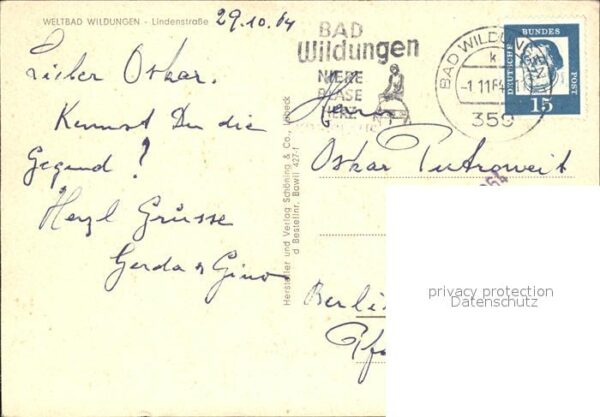 WELTBAD WILDUNGEN - Lindenstraße
29.10.64
Lieber Oskar.
Kennst Du die
Gegend?
Herzl Grüsse
Gerda & Gino
Hersteller und Verlag Schöning & Co., Lübeck
d Bestellnr. Bawil 427-f
BAD
Wildungen
NIERE
BLASE
HERZ
BAD WILDUN
k
-1.11.64
359
DEUTSCHE BUNDES POST
15
Herrn
Oskar
Berli
Pfa
privacy protection
Datenschutz